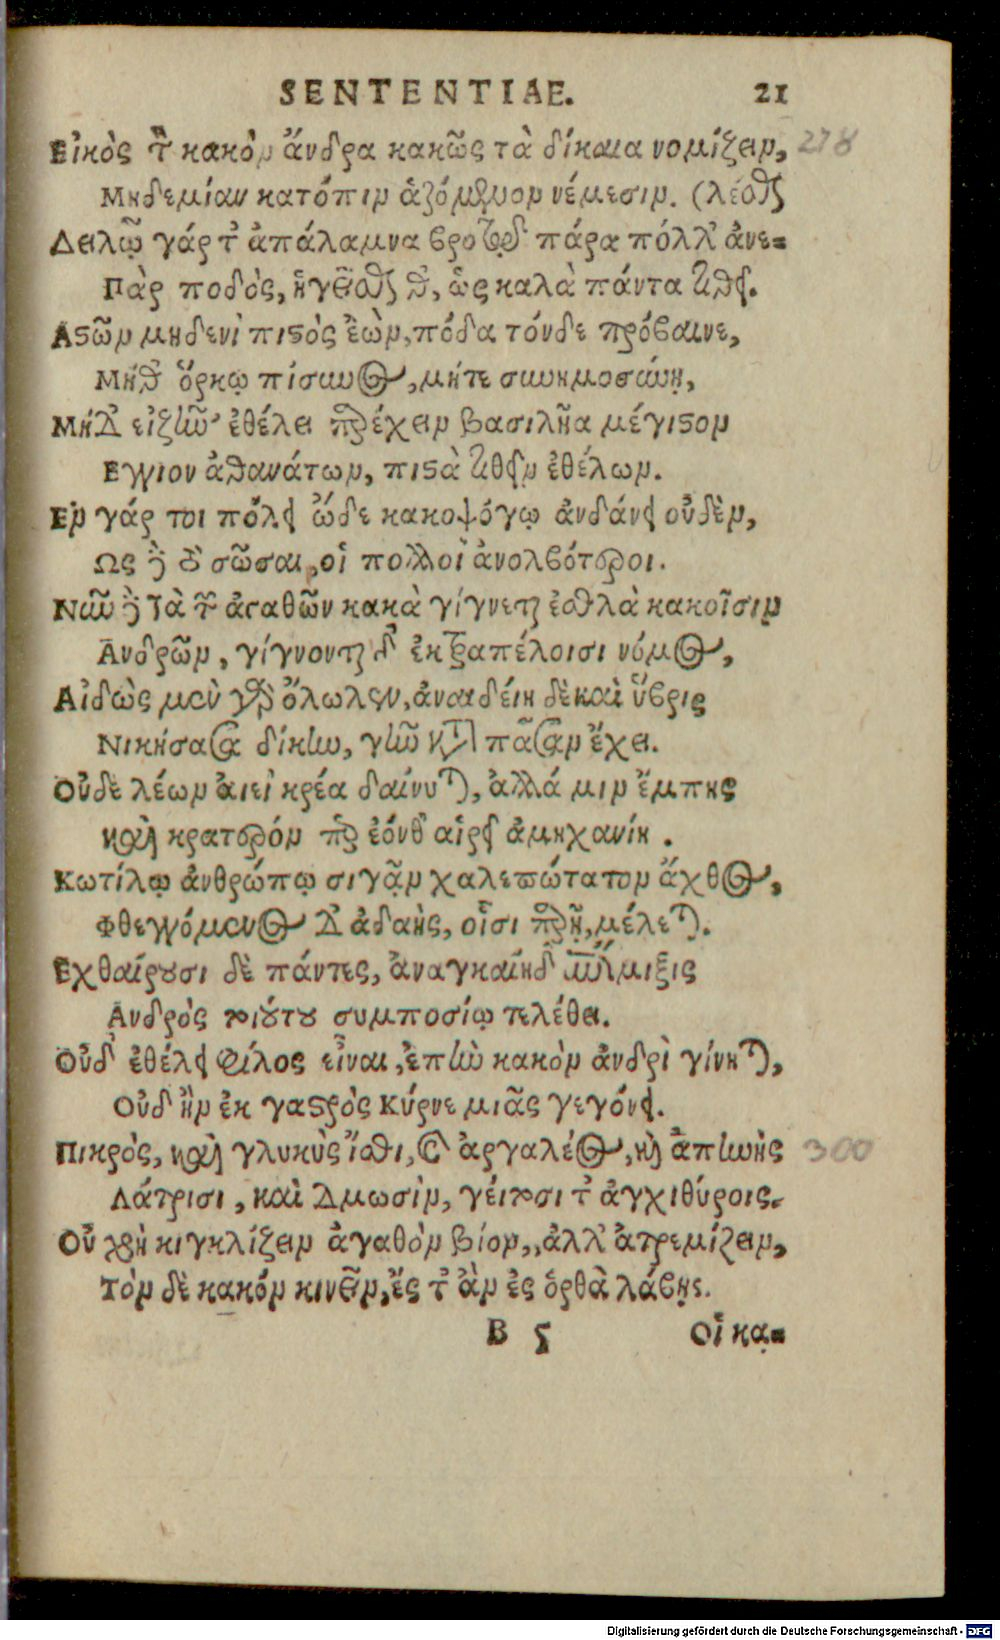 SENTENTIAE. 21
Εἰκὸς τ̃ κακὸν ἄνδρα κακῶς τὰ δίκαια νομίζειν, 278
Μηδεμίαν κατόπιν ἁζόμενον νέμεσιν. (λέσθαι
Δειλῷ γάρ τ' ἀπάλαμνα βροτῷ δ' πάρα πόλλ' ἀνε-
Πὰρ ποδὸς, ἡγεῖσθαι θ', ὡς καλὰ πάντα τιθεῖ.
Αστῶν μηδενὶ πιστὸς ἐὼν, πόδα τόνδε πρόβαινε,
Μήθ' ὅρκῳ πίσυνος, μήτε συνημοσύνῃ,
Μήδ' εἰ ζῆν' ἐθέλει παρέχειν βασιλῆα μέγιστον
Εγγιον ἀθανάτων, πιστὰ τιθεῖν ἐθέλων.
Εν γάρ τοι πόλει ὧδε κακοψόγῳ ἀνδάνει οὐδὲν,
Ως δὲ τὸ σῶσαι, οἱ πολλοὶ ἀνολβότεροι.
Νῦν δὲ τὰ τῶν ἀγαθῶν κακὰ γίγνεται ἐσθλὰ κακοῖσιν
Ανδρῶν, γίγνονται δ' ἐκτραπέλοισι νόμος,
Αἰδὼς μὲν γὰρ ὄλωλεν, ἀναιδείη δὲ καὶ ὕβρις
Νικήσασα δίκην, γῆν κατὰ πᾶσαν ἔχει.
Οὐδὲ λέων αἰεὶ κρέα δαίνυται, ἀλλά μιν ἔμπης
καὶ κρατερόν περ ἐόνθ' αἱρεῖ ἀμηχανίη.
Κωτίλῳ ἀνθρώπῳ σιγᾷν χαλεπώτατον ἄχθος,
Φθεγγόμενος δ' ἀδαὴς, οἷσι παρῇ, μέλεται.
Εχθαίρουσι δὲ πάντες, ἀναγκαίη δ' ἐπίμιξις
Ανδρὸς τοιούτου συμποσίῳ τελέθει.
Οὐδ' ἐθέλει φίλος εἶναι, ἐπὴν κακὸν ἀνδρὶ γίνηται,
Οὐδ' ἢν ἐκ γαστρὸς Κύρνε μιᾶς γεγόνει.
Πικρὸς, καὶ γλυκὺς ἴσθι, καὶ ἀργαλέος, καὶ ἀπηνὴς 300
Λάτρισι, καὶ δμωσὶν, γείτοσι τ' ἀγχιθύροις.
Οὐ χρὴ κιγκλίζειν ἀγαθὸν βίον, ἀλλ' ἀτρεμίζειν,
Τὸν δὲ κακόν κινεῖν, ἔς τ' ἂν ἐς ὀρθὰ λάβῃς.
B 5 Οἱ κα-
Digitalisierung gefördert durch die Deutsche Forschungsgemeinschaft - DFG